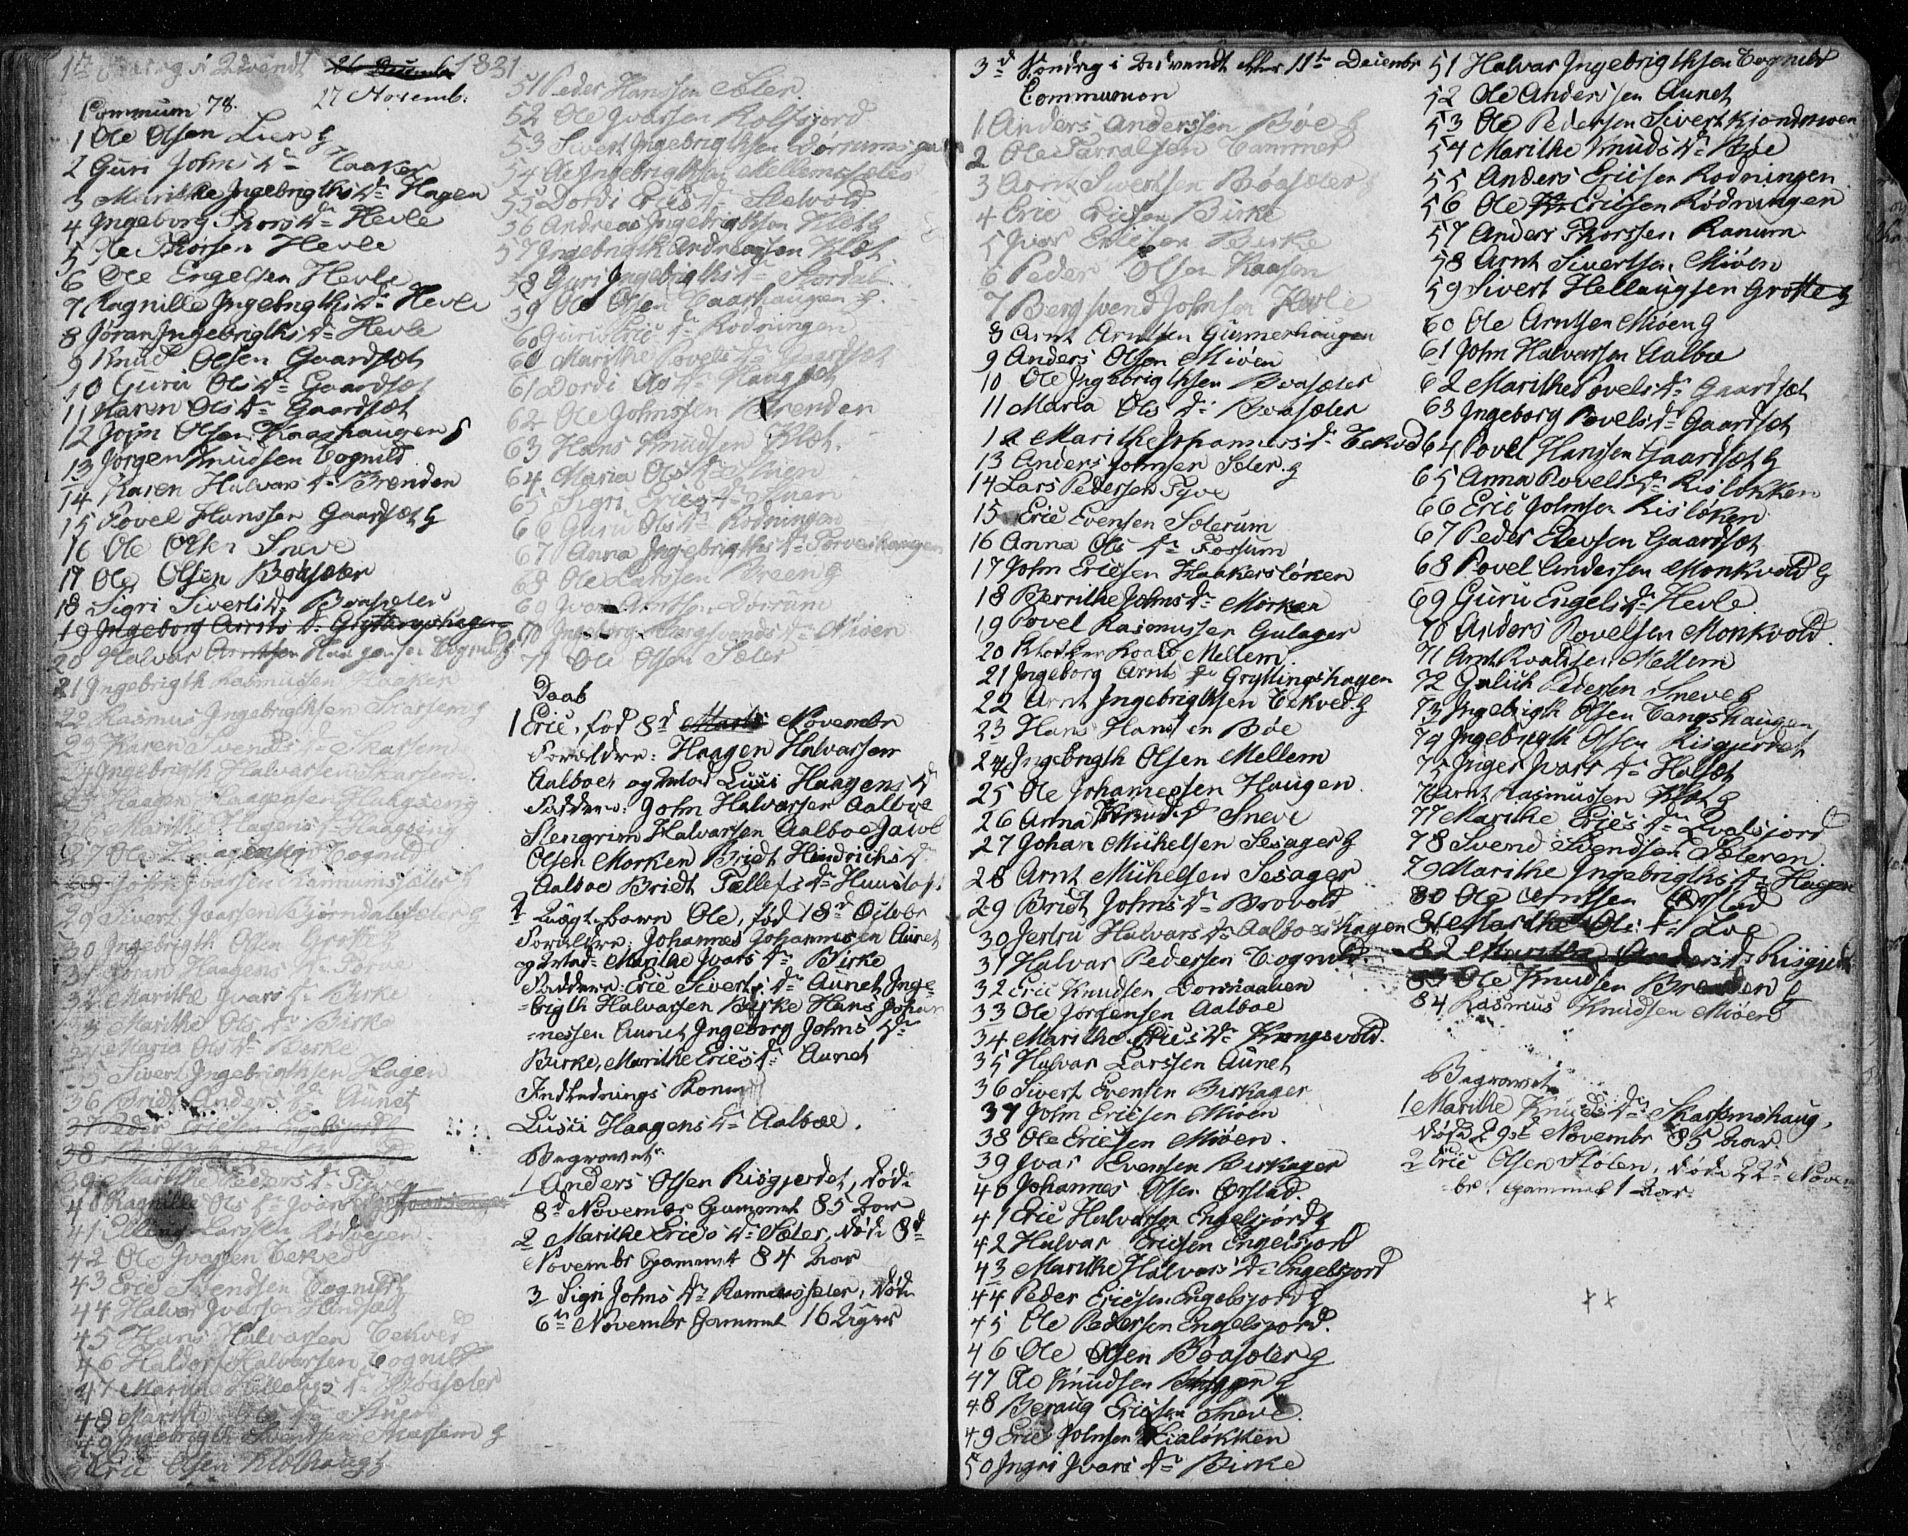 1ste i Advendt 26 Decembr 1831
27 Novemb.
Commun 78.
1 Ole Olsen Lien g
2 Guri Johns Dr Haaker
3 Marithe Ingebrigths Dr Hagen
4 Ingeborg Thors Dr Hevle
5 Ole Thorsen Hevle
6 Ole Engelsen Hevle
7 Ragnille Ingebrigths Dr Hevle
8 Jøran Ingebrigths Dr Hevle
9 Knud Olsen Gaardsæt
10 Guru Ols Dr Gaardsæt
11 Karen Ols Dr Gaardsæt
12 John Olsen Kaashaugen g
13 Jørgen Knudsen Tognild
14 Karen Halvars Dr Brenden
15 Povel Hanssen Gaardsæt g
16 Ole Olsen Sneve
17 Ole Olsen Bøasæter
18 Sigri Siverts Dr Boasæter
19 Ingeborg Arnts Dr Gryttingshagen
20 Halvar Arntsen Haugensen Tognild g
21 Ingebrigth Rasmussen Haaker
22 Rasmus Ingebrigthsen Skarsem g
23 Karen Svends Dr Skarsem
24 Ingebrigth Halvarsen Skarsem
25 Haagen Haagensen Haagseng
26 Marithe Hagens Dr Haagseng
27 Ole Haagensen Tognild
28 John Ivarsen Ramumsæter g
29 Sivert Ivarsen Bjørndalsæter g
30 Ingebrigth Olsen Grøtte g
31 Jøran Haagens Dr Torve
32 Marithe Ivars Dr Birke
33 Marithe Ols Dr Birke
34 Maria Ols Dr Berke
35 Sivert Ingebrigthsen Hagen
36 Bridt Anders Dr Aunet
37 Peder Ericsen Engelsjord
38
39 Marithe Peders Dr Fyve
40 Ragnille Ols Dr
41 Elling Larssen Rødvejen
42 Ole Ivarsen Tekved
43 Eric Svendsen Tognild
44 Halvor Ivarsen Hindsæt
45 Hans Halvarsen Tekved
46 Haldor Halvarsen Tognild
47 Marithe Hellaugs Dr Bøasæter
48 Marith Ols Dr
49 Ingebrigth Svendsen Skarsem g
50 Eric Olsen Kløthaug g
51 Peder Hanssen Sæter
52 Ole Ivarsen Rolfsjord
53 Sivert Ingebrigthsen
54 Ae Ingebrigthsen Mellemsæter
55 Dordi Erics Dr Stølvold
56 Andreas Ingebrigthsen Klæt g
57 Ingebrigth Andreassen Klæt
58 Guri Ingebrigths Dr
59 Ole Olsen Kaashaugen g
60 Guru Erics Dr Rødningen
60 Marithe Povels Dr Gaardsæt
61 Dordi Ao Dr Haugsæt
62 Ole Johnssen Brenden
63 Hans Knudsen Klæt
64 Maria Ols Dr
65 Sigri Erics Dr
66 Guru Ols Dr Rødningen
67 Anna Ingebrigths Dr Torveshaugen
68 Ole Larssen Breen g
69 Ivar Arntsen Dørrum
70 Ingeborg Bergsvends Dr Miøen
71 Ole Olsen Sæter
Daab
1 Eric, fød 8d Marts Novembr
Forældre: Haagen Halvarssen
Aalboe, og Mod Lusi Haagens Dr
Faddere: John Halvarssen Aalboe
Stengrim Halvarsen Aalboe Jacob
Olsen Morken Bridt Hindrichs Dr
Aalboe Bridt Tøllefs Dr
2 Uægt Barn Ole, fød 18d Octobr
Forældre: Johannes Johannesen Aunet
og Mod Marithe Ivars Dr Birke
Faddere: Eric Siverts Dr Aunet Inge-
-brigth Halvarsen Birke Hans Johan-
-nessen Aunet Ingeborg Johns Dr
Birke, Marithe Erics Dr Aunet
Indledningskone
Lusii Haagens Dr Aalboe.
Begravet
1 Anders Olsen Risgjerdet, død
8d Novembr Gammel 85 Aar
2 Marithe Erics Dr Sæter, død 8d
Novembr Gammel 84 Aar
3 Sigri Johns Dr Rammensæter, død
6te Novembr Gammel 16 Uger
3d Søndag i Advendt eller 11te Decembr
Communion
1 Anders Anderssen Bøe g
2 Ole Tarralsen Tammer
3 Arnt Sivertsen Bøasæter g
4 Eric Ericsen Birke
5 Ivar Ericsen Birke
6 Peder Olsen Kaasen
7 Bergsvend Johnsen Hevle
8 Arnt Arntsen Gunnerhaugen
9 Anders Olsen Miøen
10 Ole Ingebrigthsen Boasæter
11 Maria Ols Dr Boasæter
12 Marithe Johannes Dr Tekved
13 Anders Johnsen Sæter g
14 Lars Pedersen Fyve
15 Eric Evensen Sæterum
16 Anna Ols Dr Fossum
17 John Ericsen Haakersløken
18 Berrithe Johns Dr Mørken
19 Povel Rasmussen Gulager
20 Mellem
21 Ingeborg Arnts Dr Gryttingshagen
22 Arnt Ingebrigthsen Tekved g
23 Hans Hansen Bøe
24 Ingebrigth Olsen Mellem
25 Ole Johannessen Haugen
26 Anna Knuds Dr Sneve
27 Johan Michelsen Sesager g
28 Arnt Michelsen Sesager
29 Bridt Johns Dr Brovold
30 Jertru Halvars Dr Aalboe Hagen
31 Halvar Pedersen Tognild
32 Eric Knudsen Donhaauen
33 Ole Jørgensen Aalboe
34 Marithe Erics Dr Kongsvold
35 Halvar Larssen Aunet
36 Sivert Evensen Birkager
37 John Ericsen Miøen
38 Ole Ericsen Miøen
39 Ivar Evensen Birkager
40 Johannes Olsen Ørstad
41 Eric Halvarsen Engelsjord g
42 Halvar Ericsen Engelsjord
43 Marithe Halvars Dr Engelsjord
44 Peder Ericsen Engelsjord g
45 Ole Pedersen Engelsjord
46 Ole Olsen Boasæter g
47 Ao Knudsen g
48 Beraug Ericsen Sneve
49 Eric Johnsen Lialøkken
50 Ingri Ivars Dr Birke
51 Halvar Ingebrigthsen Tognild
52 Ole Andersen Aunet
53 Ole Pedersen Sivert
54 Marithe Knuds Dr Bøe
55 Anders Ericsen Rødningen
56 Ole Ericsen Rødningen
57 Anders Thorssen Ranum
58 Arnt Sivertsen Miøen
59 Sivert Hellaugsen Grøtte g
60 Ole Arntsen Miøen g
61 John Halvarsen Aalboe
62 Marithe Povels Dr Gaardsæt
63 Ingeborg Povels Dr Gaardsæt
64 Povel Hanssen Gaardsæt g
65 Anna Povels Dr Risløkken
66 Eric Johnsen Risløken
67 Peder Elevsen Gaardsæt
68 Povel Andersen Monkvold g
69 Guru Engels Dr Hevle
70 Anders Povelsen Monkvold
71 Arnt Roaldsen Mellem
72 Gulich Pedersen Sneve g
73 Ingebrigth Olsen Tangshaugen
74 Ingebrigth Olsen Risgjerdet
75 Inger Ivars Dr Halsæt
76 Arnt Rasmussen Klæt g
77 Marithe Erics Dr
78 Svend Svendsen Sæteren
79 Marithe Ingebrigths Dr Hagen
80 Ole Arntsen Ørstad
81 Marithe Ols Dr Loe
82 Marithe Anders Dr Risgjerdet
83 Ole Knudsen Brenden g
84 Rasmus Knudsen Miøen
Begravet
1 Marithe Knuds Dr Skarsemshaug,
død 29de Novembr 85 Aar
2 Eric Olsen Stølen, død 22d Novem-
-br. Gammel 1 Aar.